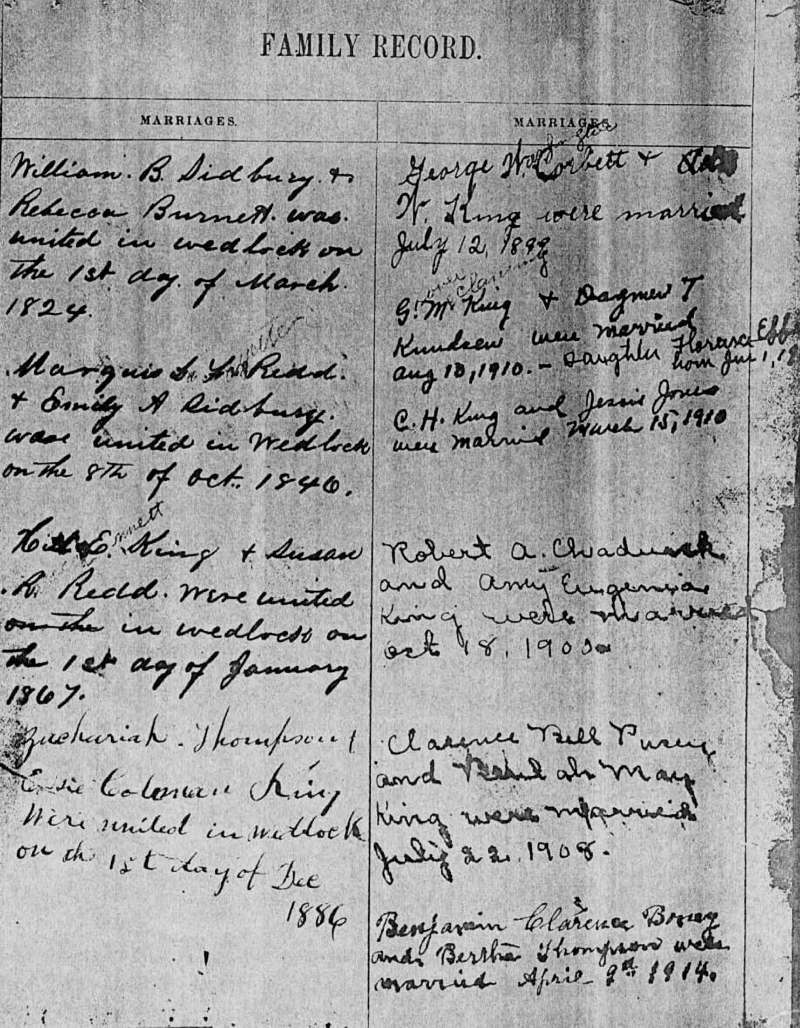 FAMILY RECORD.
MARRIAGES.
William. B. Sidbury. &
Rebecca Burnett. was.
united in wedlock on
the 1st. day. of March.
1824.
Marquis L. Redd.
& Emily A Sidbury.
wase united in Wedlock
on the 8th of Oct. 1846.
E. King & Susan
R. Redd. Were united
on the in wedlock on
the 1st day of January
1867.
Zachariah. Thompson &
Essie Coleman King
Were united in wedlock
on th 1st day of Dec
1886
MARRIAGES.
George W. Corbett &
W. King were married
July 12, 1899
Clarening
G. M King & Dagmer T
Knudsen were married
Aug 10, 1910. - Daughter Florence
born Jun 1,
C. H. King and Jessie Jones
were Married March 15, 1910
Robert A. Chadwick
and Amy Eugenia
King were married
Oct 18, 1900
Clarence Bell Pusey
and Beulah May
King were married
July 22, 1908.
Benjamin Clarence Boney
and Bertha Thompson were
married April 9th 1914.